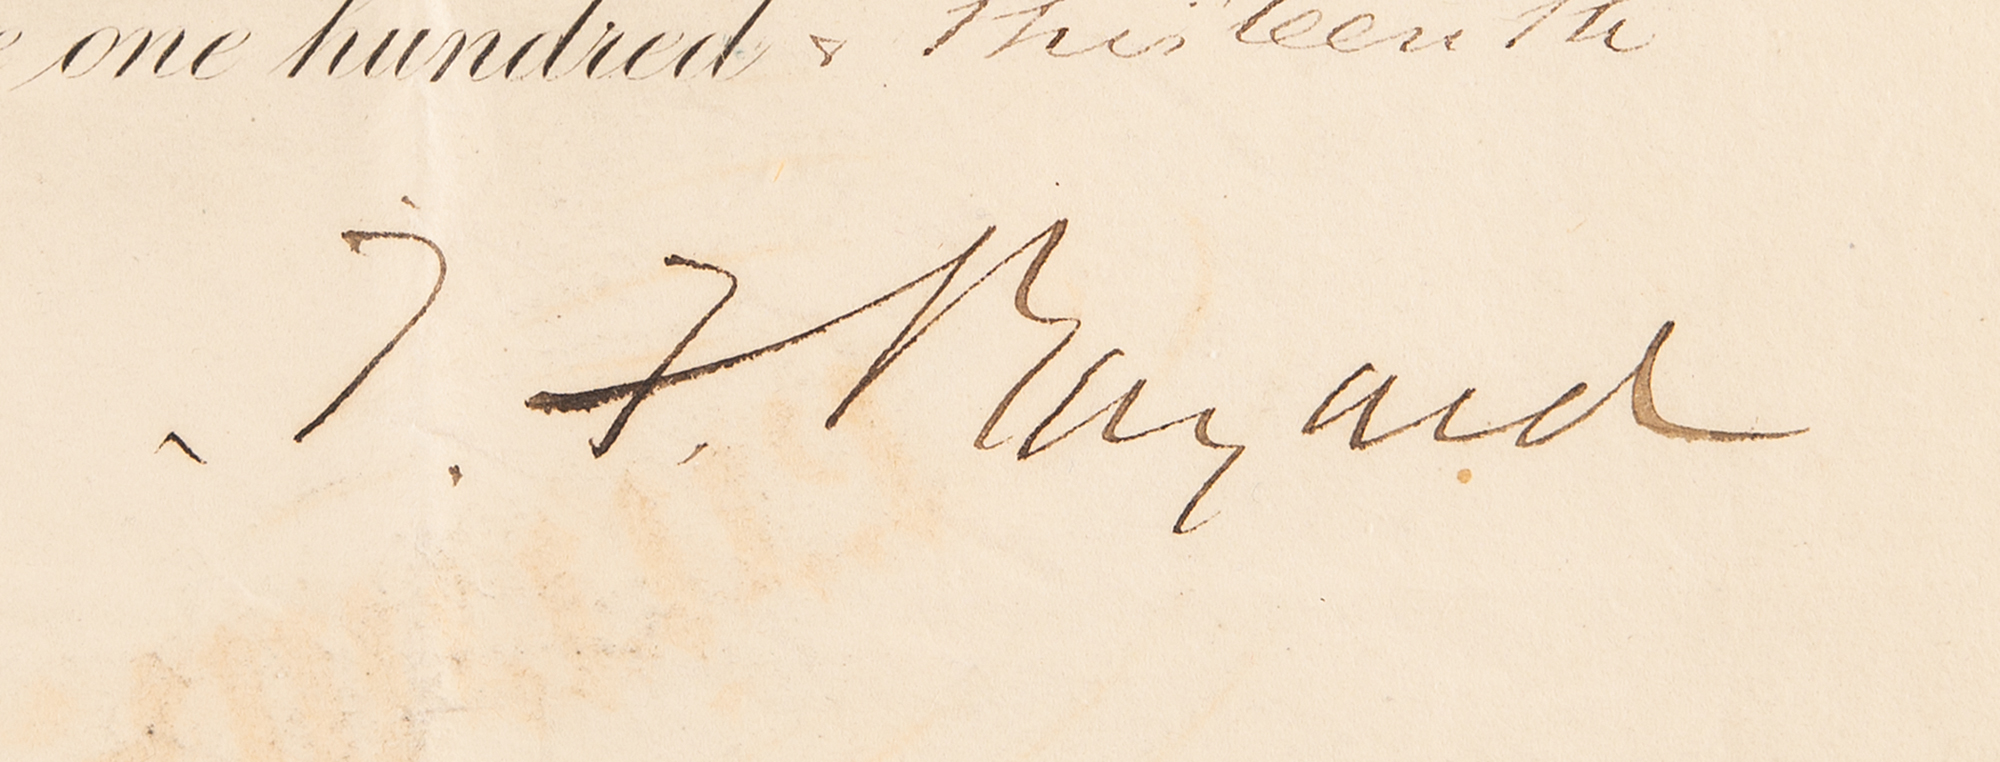 one hundred & thirteenth
T. F. Bayard